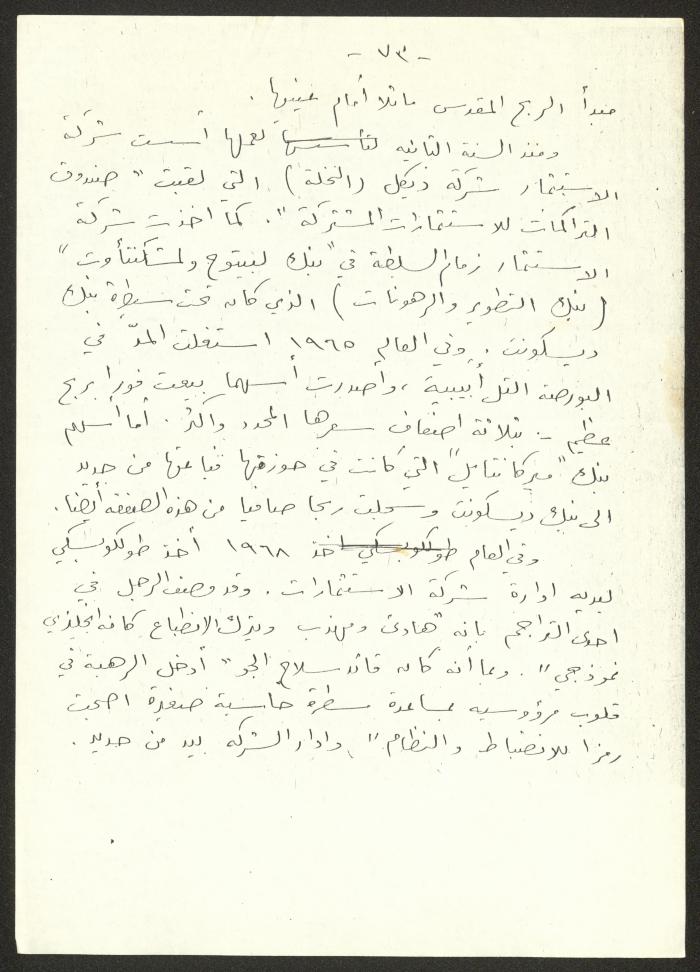 - ٧٣ -
مبدأ الربح المقدس ماثلا أمام عينيها .
ومنذ السنة الثانيه لتأسيسها لعملها أسست شركة
الاستثمار شركة ديكل (النخلة) التي لقبت " صندوق
التراكمات للاستثمارات المشتركة " . كما اخذت شركة
الاستثمار زمام السلطة في " بنك لفيتوح ولمشكنتأوت "
(بنك التطوير والرهونات) الذي كان تحت سيطرة بنك
ديسكونت . وفي العام ١٩٦٥ استغلت المدّ في
البورصة التل أبيبية ، وأصدرت أسهما بيعت فورا بربح
عظيم - بثلاثة اضعاف سعرها المحدد واكثر . أما أسهم
بنك " ميركانتايل " التي كانت في حوزتها فباعتها من جديد
الى بنك ديسكونت وسجلت ربحا صافيا من هذه الصفقة أيضا .
وفي العام طولكوبسكي اخذ ١٩٦٨ أخذ طولكوبسكي
لیدیه ادارة شركة الاستثمارات . وقد وصف الرجل في
احدى التراجم بانه " هادئ ومهذب ويترك الانطباع كانه انجلزي
نموذجي " . وبما أنه كان قائد سلاح الجو " أدخل الرهبة في
قلوب مرؤوسيه بمساعدة مسطرة حاسبة صغيرة اصبحت
رمزا للانضباط والنظام " وادار الشركه بيد من حديد .